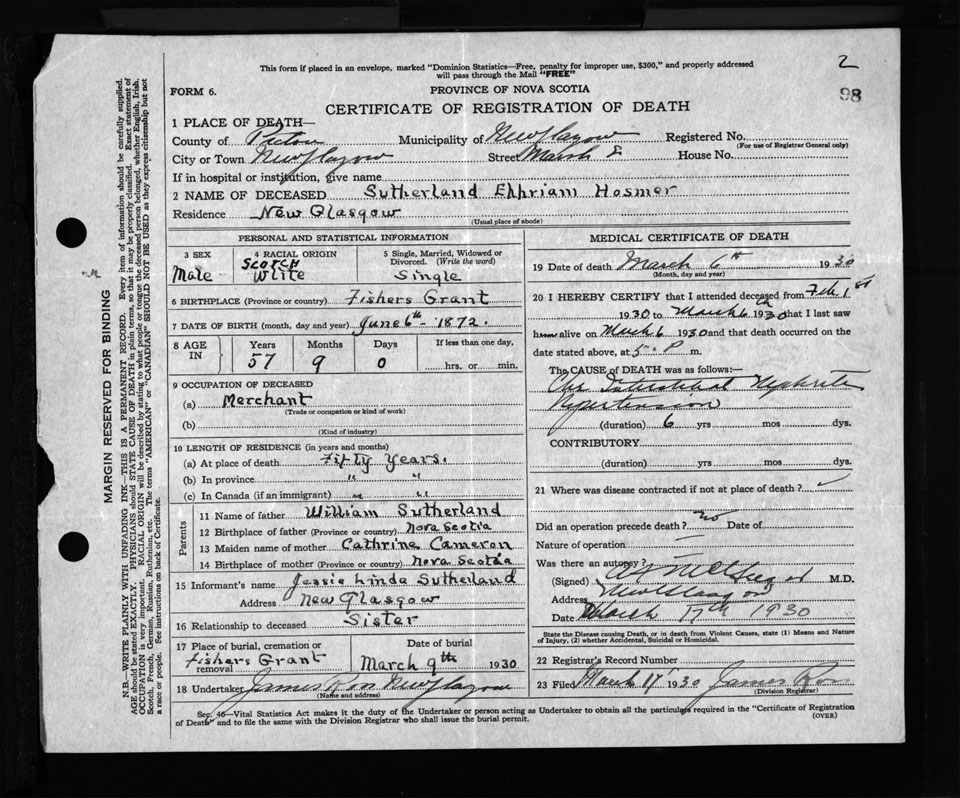 This form if placed in an envelope, marked "Dominion Statistics—Free, penalty for improper use, $300," and properly addressed
will pass through the Mail "FREE"
2
98
FORM 6.
PROVINCE OF NOVA SCOTIA
CERTIFICATE OF REGISTRATION OF DEATH
1 PLACE OF DEATH—
County of Pictou Municipality of New Glasgow Registered No.
(For use of Registrar General only)
City or Town New Glasgow Street Marsh St House No.
If in hospital or institution, give name
2 NAME OF DECEASED Sutherland Ehpriam Hosmer
Residence New Glasgow
(Usual place of abode)
PERSONAL AND STATISTICAL INFORMATION
3 SEX
Male
4 RACIAL ORIGIN
Scotch
White
5 Single, Married, Widowed or
Divorced. (Write the word)
Single
6 BIRTHPLACE (Province or country) Fishers Grant
7 DATE OF BIRTH (month, day and year) June 6th - 1872.
8 AGE
IN
Years Months Days If less than one day,
57 9 0 hrs. or min.
9 OCCUPATION OF DECEASED
(a) Merchant
(Trade or occupation or kind of work)
(b)
(Kind of industry)
10 LENGTH OF RESIDENCE (in years and months)
(a) At place of death Fifty Years.
(b) In province " "
(c) In Canada (if an immigrant) " "
Parents
11 Name of father William Sutherland
12 Birthplace of father (Province or country) Nova Scotia
13 Maiden name of mother Cathrine Cameron
14 Birthplace of mother (Province or country) Nova Scotia
15 Informant's name Jessie Linda Sutherland
Address New Glasgow
16 Relationship to deceased Sister
17 Place of burial, cremation or
removal Fishers Grant
Date of burial
March 9th 1930
18 Undertaker James Ross New Glasgow
(Name and address)
MEDICAL CERTIFICATE OF DEATH
19 Date of death March 6th 1930
(Month, day and year)
20 I HEREBY CERTIFY that I attended deceased from Feb 1st
1930 to March 6th 1930 that I last saw
him alive on March 6 1930 and that death occurred on the
date stated above, at 5 P m.
The CAUSE OF DEATH was as follows:—
Chr Interstitial Nephritis
Hypertension
(duration) 6 yrs mos dys.
CONTRIBUTORY
(duration) yrs mos dys.
21 Where was disease contracted if not at place of death?
Did an operation precede death? no Date of
Nature of operation
Was there an autopsy?
(Signed) M.D.
Address New Glasgow
Date March 17th 1930
State the Disease causing Death, or in death from Violent Causes, state (1) Means and Nature
of Injury, (2) whether Accidental, Suicidal or Homicidal.
22 Registrar's Record Number
23 Filed March 17 1930 James Ross
(Division Registrar)
Sec. 46—Vital Statistics Act makes it the duty of the Undertaker or person acting as Undertaker to obtain all the particulars required in the "Certificate of Registration
of Death" and to file the same with the Division Registrar who shall issue the burial permit.
(OVER)
MARGIN RESERVED FOR BINDING
N.B.—WRITE PLAINLY WITH UNFADING INK—THIS IS A PERMANENT RECORD. Every item of information should be carefully supplied.
AGE should be stated EXACTLY. PHYSICIANS should STATE CAUSE OF DEATH in plain terms, so that it may be properly classified. Exact statement of
OCCUPATION is very important. RACIAL ORIGIN will be described by stating to what people or tongue the deceased person belonged, whether English, Irish,
Scotch, French, German, Russian, Ruthenian, etc. The terms "AMERICAN" or "CANADIAN" SHOULD NOT BE USED as they express citizenship but not
a race or people. See instructions on back of Certificate.